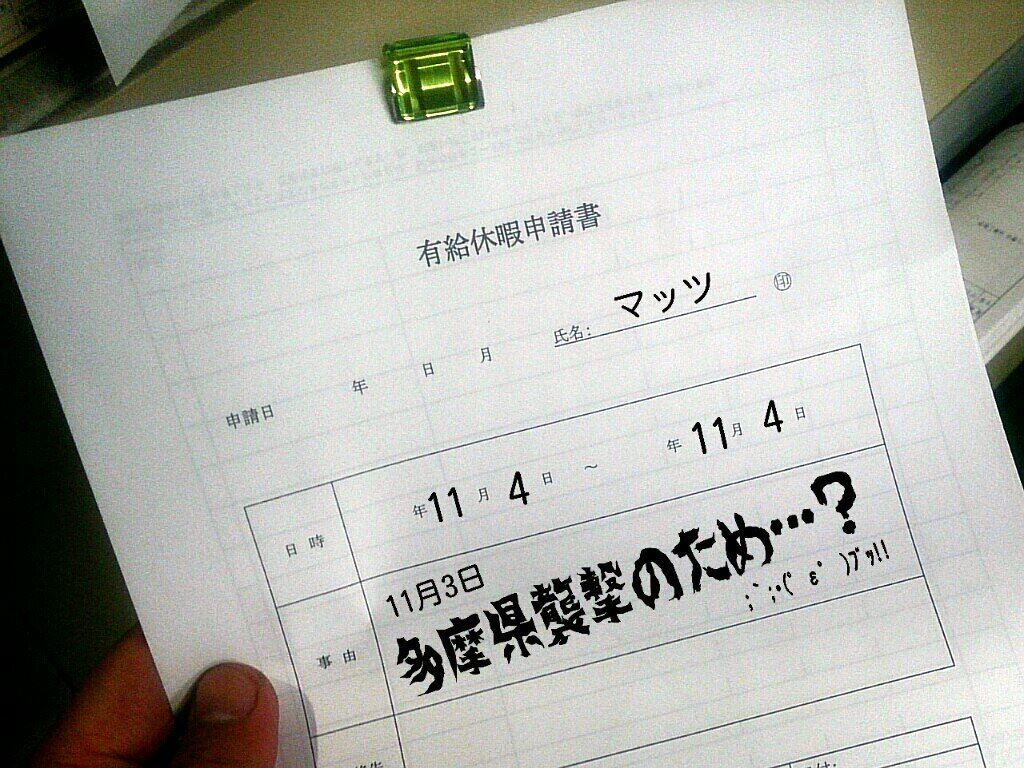 有給休暇申請書
氏名: マッツ ㊞
申請日 年 日 月
日時 年 11 月 4 日 ～ 年 11 月 4 日
事由 11月3日
多摩県襲撃のため…?
;`;･(´ε｀ )ブッ!!